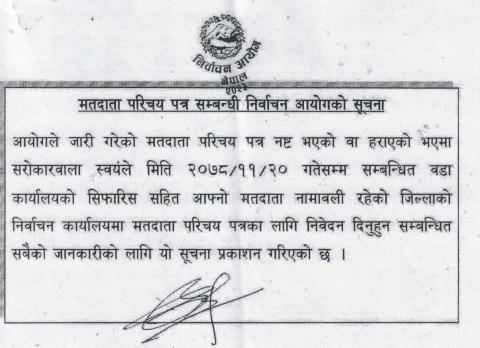 निर्वाचन आयोग
नेपाल
२०२३
मतदाता परिचय पत्र सम्बन्धी निर्वाचन आयोगको सूचना
आयोगले जारी गरेको मतदाता परिचय पत्र नष्ट भएको वा हराएको भएमा
सरोकारवाला स्वयंले मिति २०७८/११/२० गतेसम्म सम्बन्धित वडा
कार्यालयको सिफारिस सहित आफ्नो मतदाता नामावली रहेको जिल्लाको
निर्वाचन कार्यालयमा मतदाता परिचय पत्रका लागि निवेदन दिनुहुन सम्बन्धित
सबैको जानकारीको लागि यो सूचना प्रकाशन गरिएको छ ।